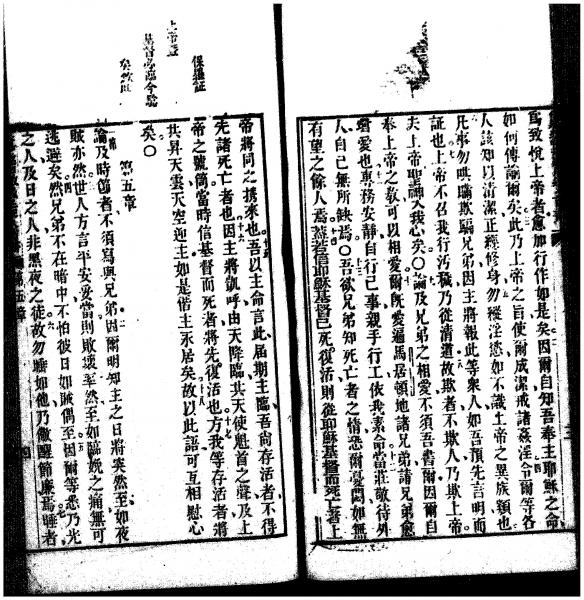 爲致悅上帝者應加行作如是矣因爾自知吾奉主耶穌之命
如何傳諭爾矣此乃上帝之旨使爾成潔戒諸姦淫令爾等各
人該知以清潔正經修身勿淫慾如不識上帝之異族類也
凡事勿哄騙欺騙兄弟因主將報此等衆人如吾預先言明而
証也上帝不召我行汚穢乃從清道故欺者不欺人乃欺上帝
夫上帝聖神入我心矣〇論及兄弟之相愛不須吾書爾因爾自
奉上帝之敎可以相愛爾旣愛遍馬居頓地諸兄弟請兄弟愈
增愛也專務安靜自行己事親手行工依我素命當莊敬待外
人自己無所缺焉〇吾欲兄弟知死亡者之情恐爾憂悶如無
有望之餘人焉蓋若信耶穌基督已死復活則從耶穌基督而死者上
保羅証
上帝
基督必臨今驗
矣
帝將同之携來也吾以主命言此屆期主臨吾尙存活者不得
先諸死亡者也因主將親呼由天降臨其天使魁首之聲及上
帝之號筒當時信基督而死者將先復活也方我等存活者將
共昇天雲天空迎主如是偕主永居矣故以此語可互相慰心
矣〇
第五章
論及時節者不須寫與兄弟因爾明知主之日將突然至如夜
賊亦然世人方言平安妥當則敗壞卒然至如臨娩之痛無可
逃避矣然兄弟不在暗中不怕彼日如賊偶至因爾等悉乃光
之人及日之人非黑夜之徒故勿睡如他乃儆醒節廉焉睡者
第五章
四